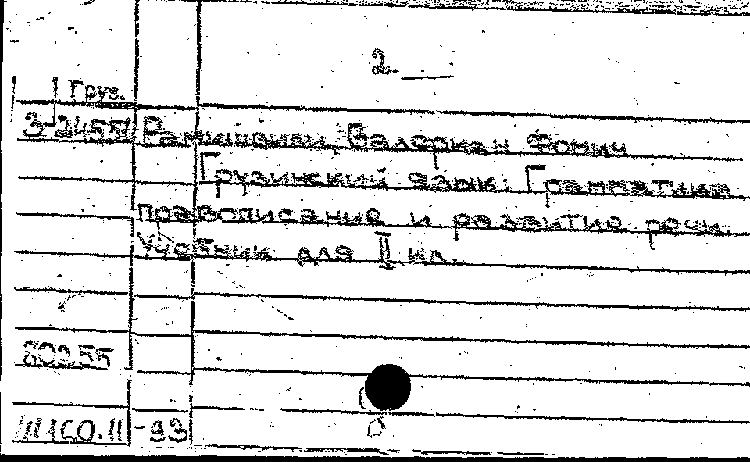 2.
Груз.
Рамишвили, Валериан Фомич
Грузинский язык: Грамматика
правописание и развитие речи.
Учебник для II кл.
809.55
-93